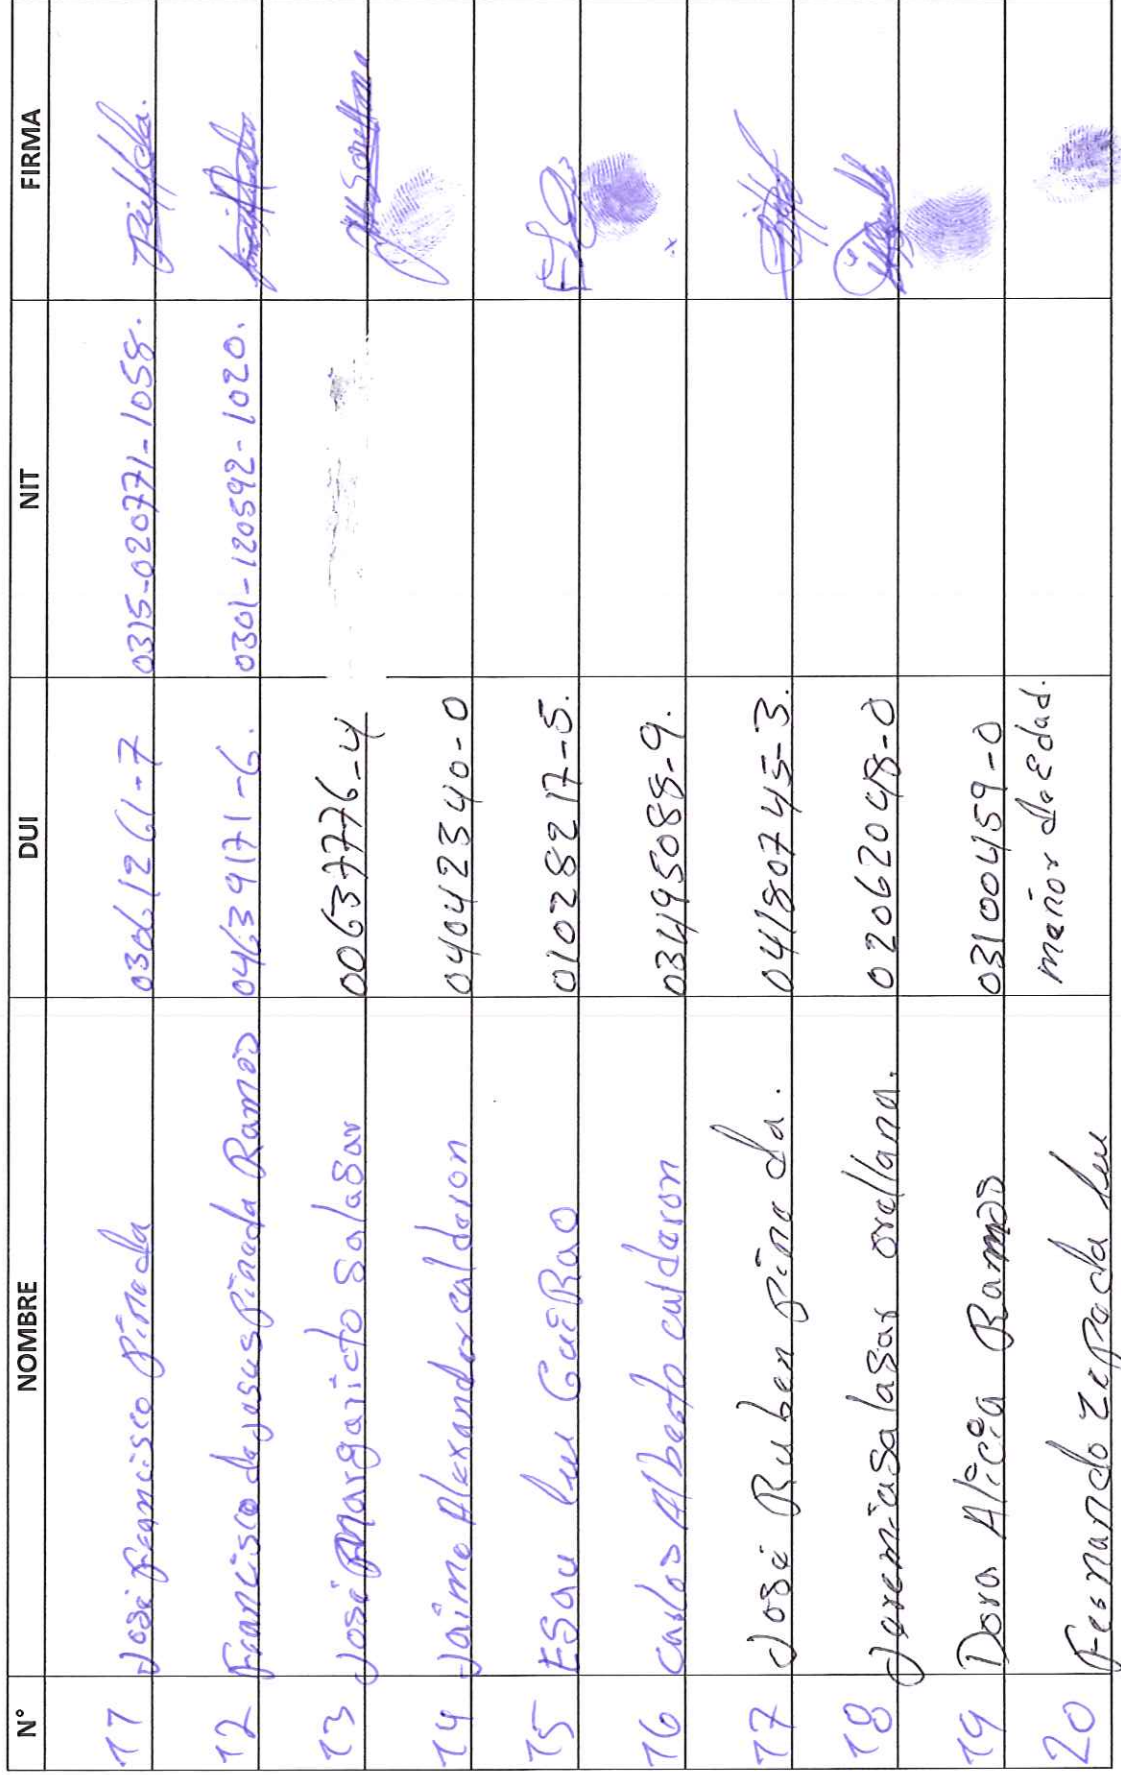 N° NOMBRE DUI NIT FIRMA
11 José Francisco Pineda 03061261-7 0315-020771-1058.
12 Francisco de Jesus Pineda Ramos 04639171-6. 0301-120592-1020.
13 José Margarito Salasar 00637776-4
14 Jaime Alexander Calderon 04042340-0
15 ESau lue Guerao 01028217-5.
16 Carlos Alberto calderon 03495088-9.
17 José Ruben Pineda. 04180745-3.
18 Jeremia Salasar orellana. 02062048-0
19 Dora Alicia Ramos 03100459-0
20 Fernando Zepeda lue menor de Edad.